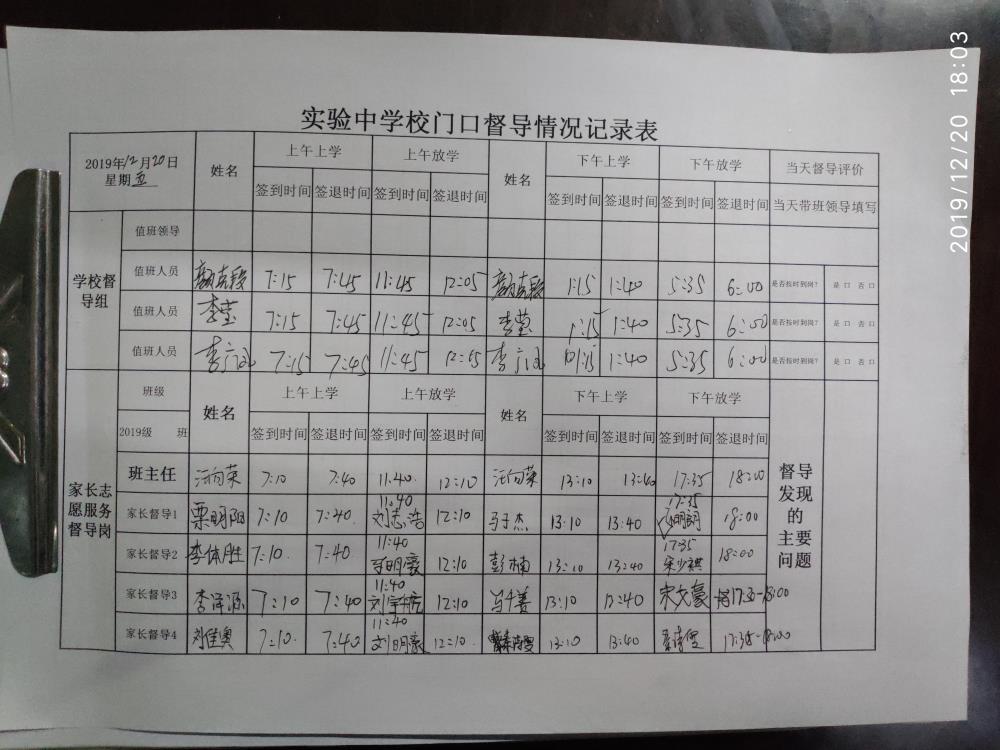 2019/12/20 18:03
实验中学校门口督导情况记录表
2019年12月20日 星期五 姓名 上午上学 上午放学 姓名 下午上学 下午放学 当天督导评价
签到时间 签退时间 签到时间 签退时间 签到时间 签退时间 签到时间 签退时间 当天带班领导填写
学校督导组
值班领导
值班人员 7:15 7:45 11:45 12:05 1:15 1:40 5:35 6:00 是否按时到岗? 是 口 否 口
值班人员 李莹 7:15 7:45 11:45 12:05 李莹 1:15 1:40 5:35 6:00 是否按时到岗? 是 口 否 口
值班人员 李广凤 7:15 7:45 11:45 12:05 李广凤 1:15 1:40 5:35 6:00 是否按时到岗? 是 口 否 口
家长志愿服务督导岗
班级 姓名 上午上学 上午放学 姓名 下午上学 下午放学 督导发现的主要问题
2019级 班 签到时间 签退时间 签到时间 签退时间 签到时间 签退时间 签到时间 签退时间
班主任 汪向荣 7:10 7:40 11:40 12:10 汪向荣 13:10 13:40 17:35 18:00
家长督导1 栗明阳 7:10 7:40 11:40 刘志浩 12:10 马于杰 13:10 13:40 17:35 18:00
家长督导2 李依胜 7:10 7:40 11:40 12:10 彭楠 13:10 13:40 17:35 18:00
家长督导3 李泽源 7:10 7:40 11:40 刘宇航 12:10 13:10 13:40 宋文豪 17:35-18:00
家长督导4 刘佳奥 7:10 7:40 11:40 刘明豪 12:10 13:10 13:40 17:35-18:00